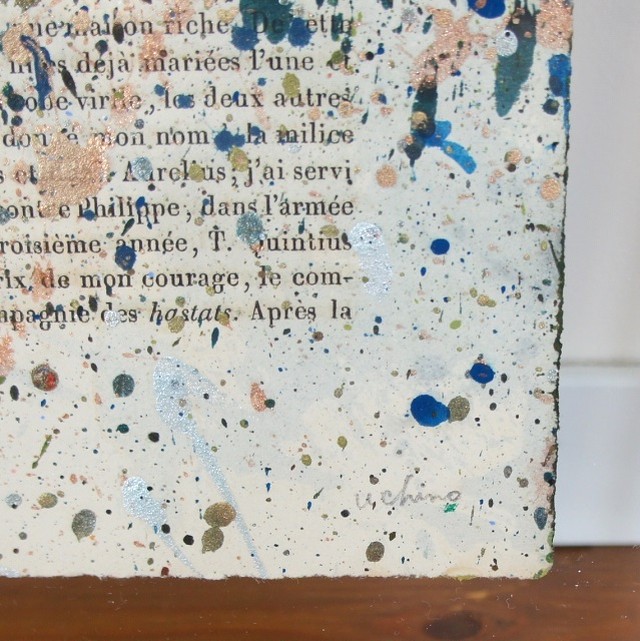 maison riche. De cette
déjà mariées l'une et
robe virile, les deux autres
donné mon nom à la milice
Aurelius; j'ai servi
contre Philippe, dans l'armée
troisième année, T. Quintius
prix de mon courage, le com-
mpagnie des hastats. Après la
uchino